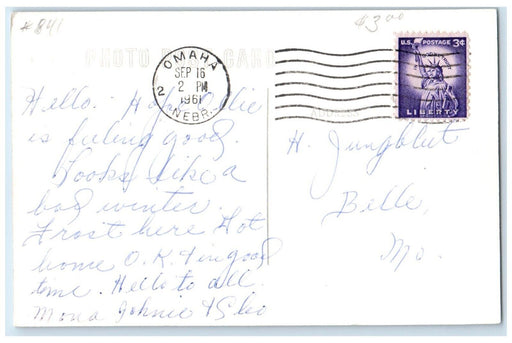 #841
$3.00
PHOTO POST CARD
OMAHA
SEP 16
2 PM
1961
NEBR.
2
U.S. POSTAGE 3¢
IN GOD WE TRUST
LIBERTY
ADDRESS
Hello. Hope Ollie
is feeling good.
Looks like a
bad winter.
Frost here. Got
home O.K. & in good
time. Hello to all.
Mona Johnie &
H. Jungblut
Belle,
Mo.